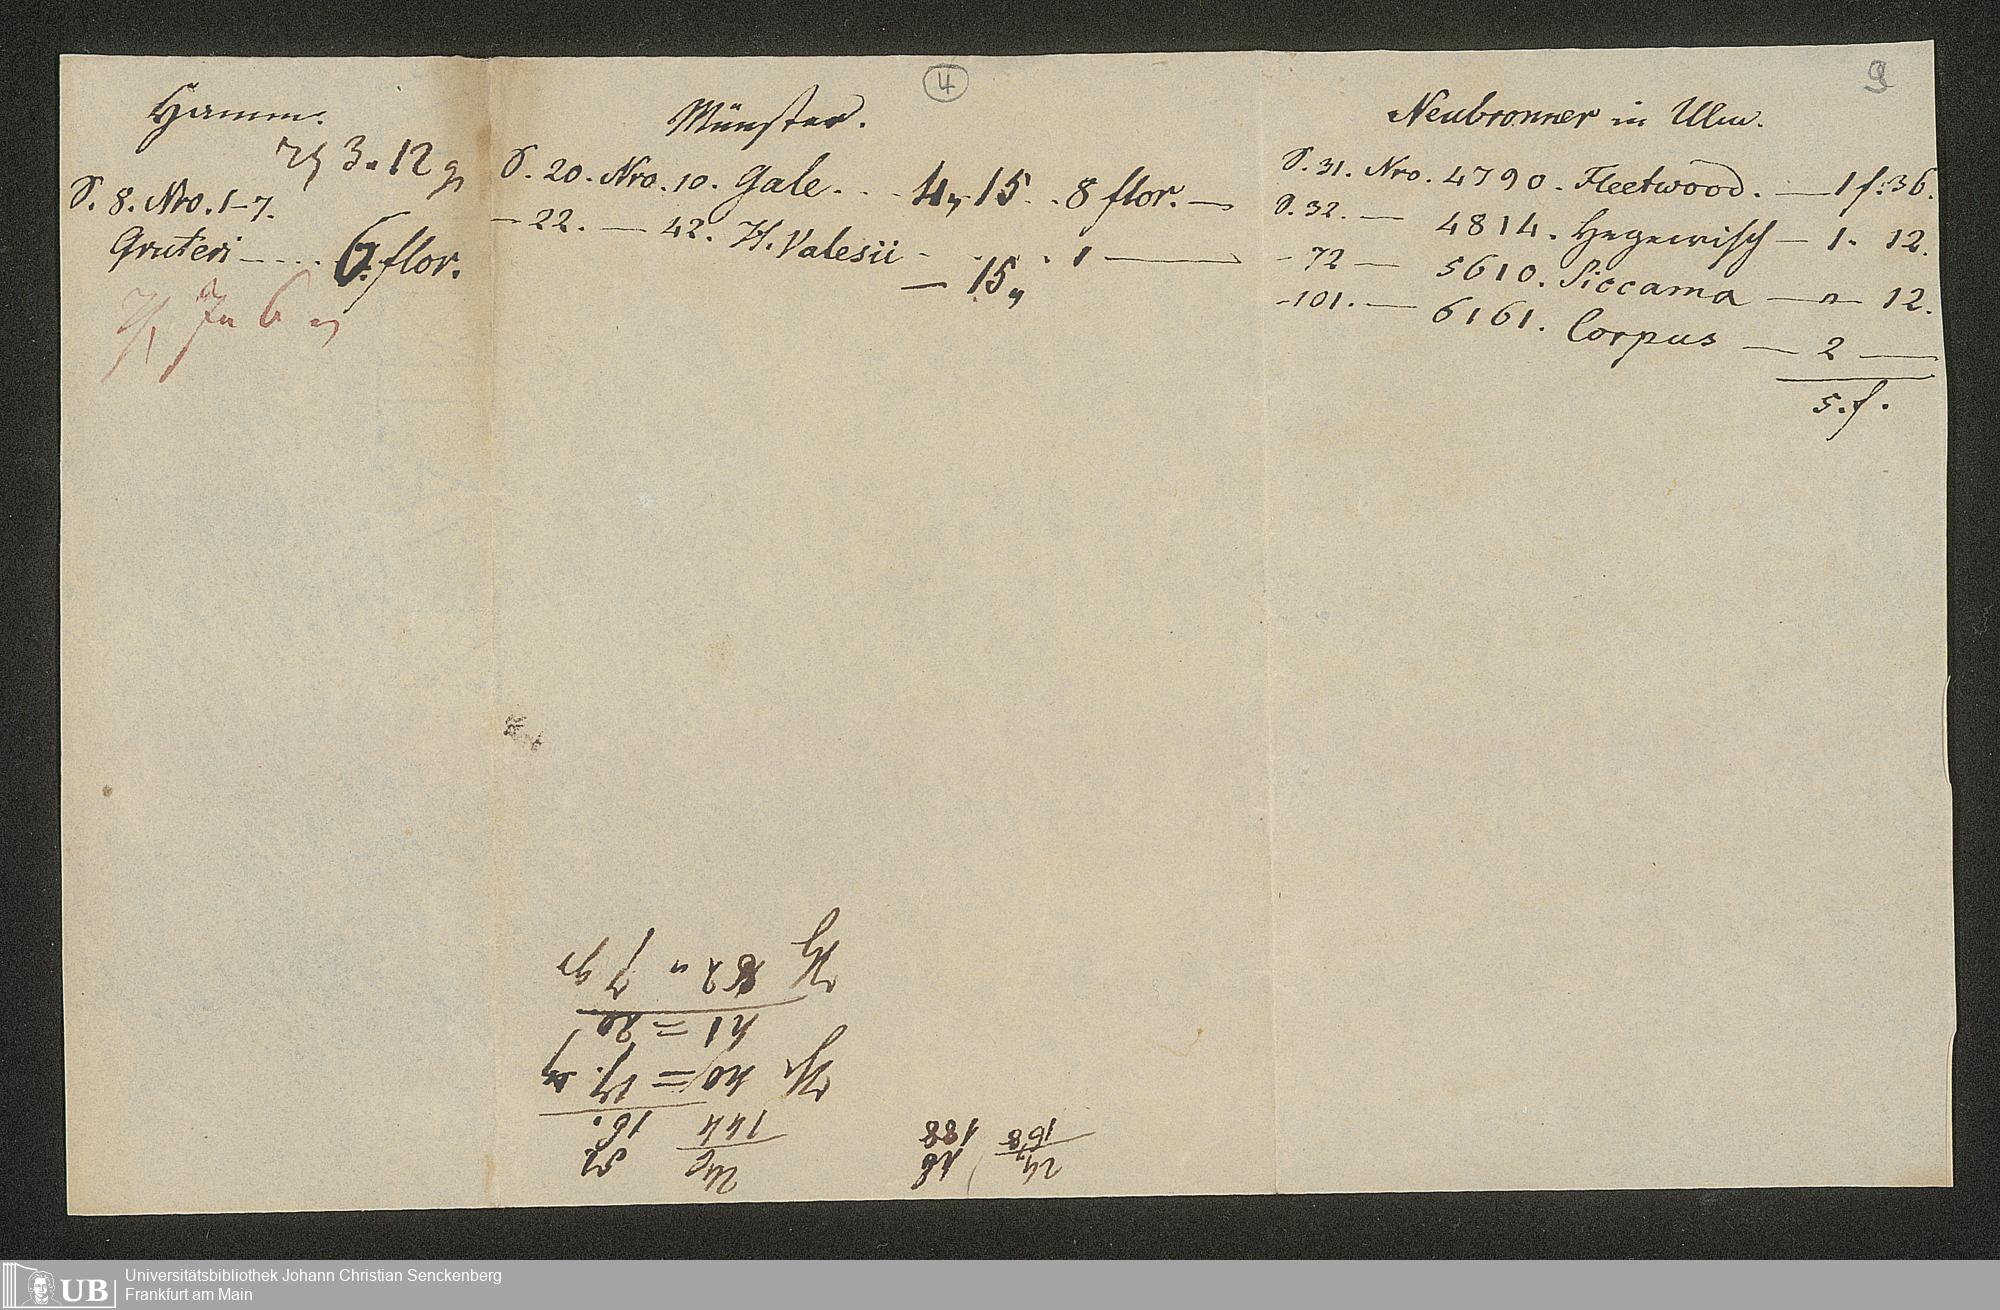 4
9
Hamm.
3 " 12 g
S. 8. Nro. 1–7.
Gruteri - - . . . 6. flor.
Münster.
S. 20. Nro. 10. Gale. . . - 4 " 15 . . 8 flor. —
— 22. — 42. H. Valesii - . . . 1 —
— 15 "
Neubronner in Ulm.
S. 31. Nro. 4790. Fleetwood. — 1 f. 36.
S. 32. — 4814. Hegewisch — 1. 12.
- 72 — 5610. Siccama — " — 12.
- 101. — 6161. Corpus — 2 —
5. f.
24
168
16
188
144
16.
41 = 20
82 " 7 gr
Universitätsbibliothek Johann Christian Senckenberg
Frankfurt am Main
UB